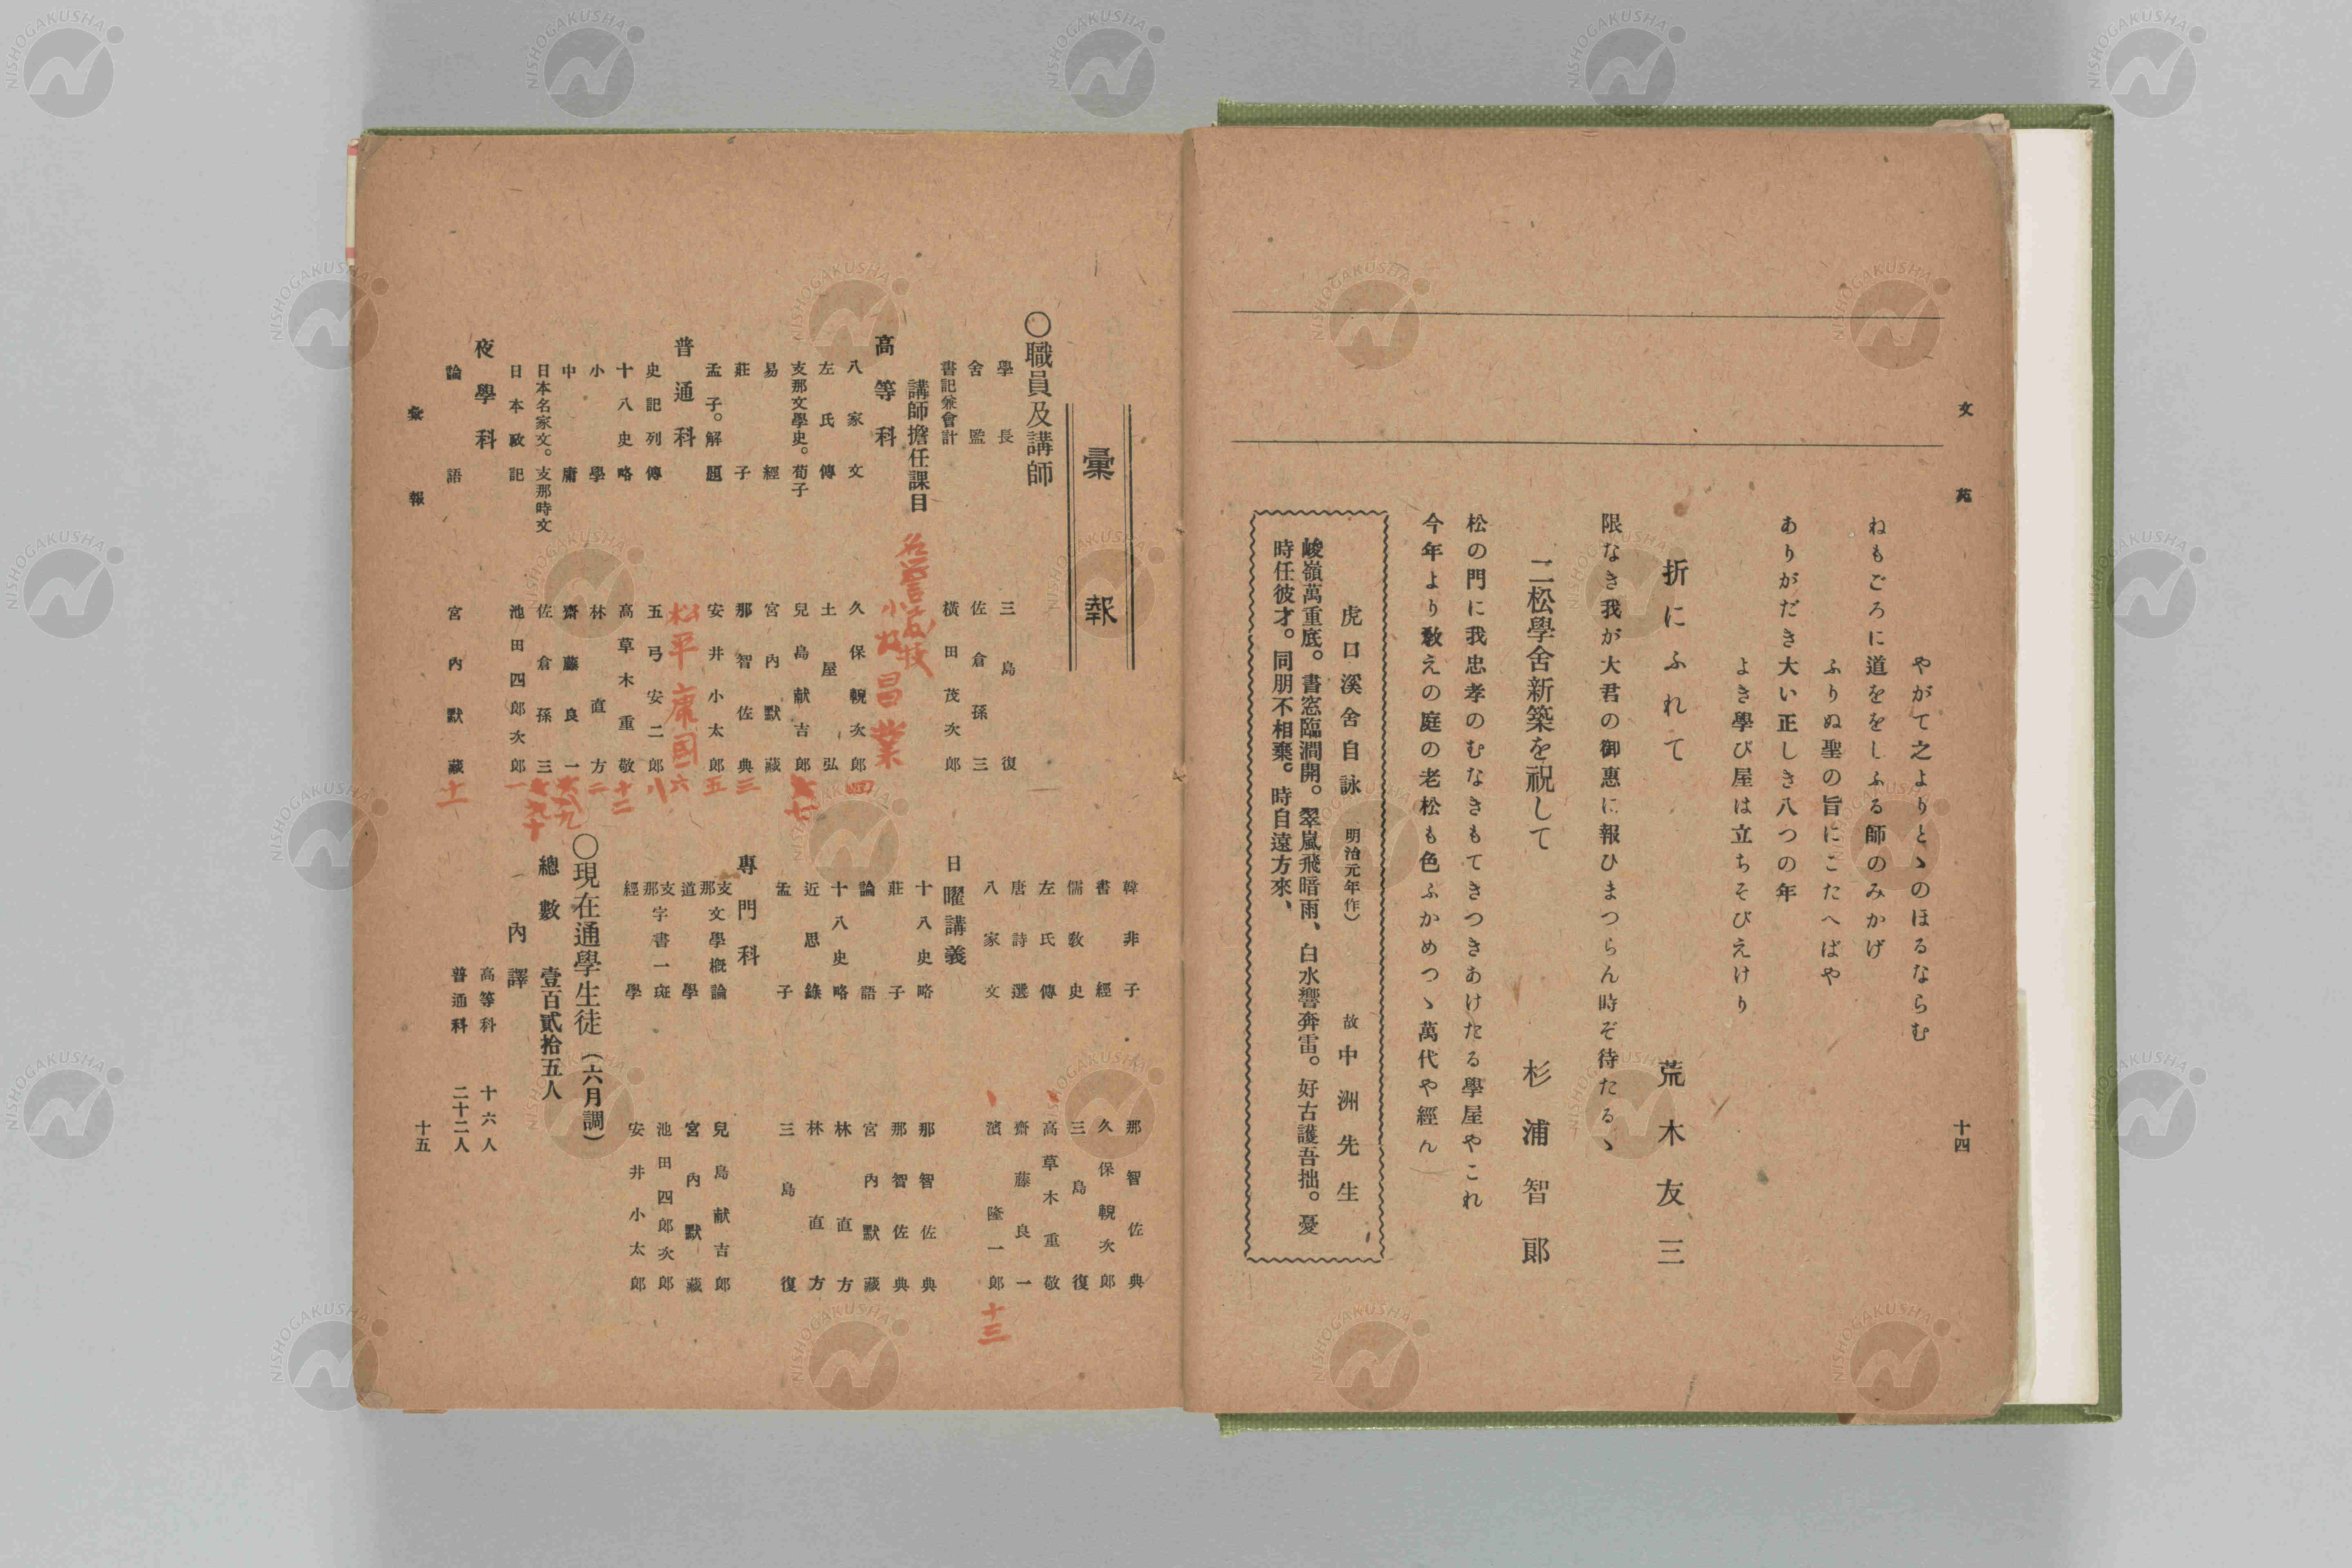 文苑
十四
やがて之よりとゝのほるならむ
ねもごろに道ををしふる師のみかげ
ふりぬ聖の旨にこたへばや
ありがだき大い正しき八つの年
よき學び屋は立ちそびえけり
折にふれて
荒木友三
限なき我が大君の御惠に報ひまつらん時ぞ待たるゝ
二松學舍新築を祝して
杉浦智郞
松の門に我忠孝のむなきもてきつきあけたる學屋やこれ
今年より敎えの庭の老松も色ふかめつゝ萬代や經ん
虎口溪舍自詠 明治元年作)
故中洲先生
峻嶺萬重底。書窓臨澗開。翠嵐飛暗雨、白水響奔雷。好古護吾拙。憂
時任彼才。同朋不相棄。時自遠方來、
彙報
〇職員及講師
學長 三島復
舍監 佐倉孫三
書記兼會計 橫田茂次郞
講師擔任課目
高等科
小牧昌業
八家文 久保輗次郞 四
左氏傳 土屋弘
支那文學史。荀子 兒島献吉郞 七
易經 宮內默藏
莊子 那智佐典 三
孟子。解題 安井小太郞 五
普通科
松平康國 六
史記列傳 五弓安二郞 八
十八史略 高草木重敬 十二
小學 林直方 二
中庸 齋藤良一 九
日本名家文。支那時文 佐倉孫三 十
日本政記 池田四郞次郞 一
夜學科
論語 宮內默藏 十一
韓非子 那智佐典
書經 久保輗次郞
儒敎史 三島復
左氏傳 高草木重敬
唐詩選 齋藤良一
八家文 濱隆一郞 十三
日曜講義
十八史略 那智佐典
莊子 那智佐典
論語 宮內默藏
十八史略 林直方
近思錄 林直方
孟子 三島復
專門科
支那文學槪論 兒島献吉郞
道學 宮內默藏
支那字書一斑 池田四郞次郞
經學 安井小太郞
〇現在通學生徒(六月調)
總數 壹百貳拾五人
內譯
高等科 十六人
普通科 二十二人
彙報
十五
NISHOGAKUSHA